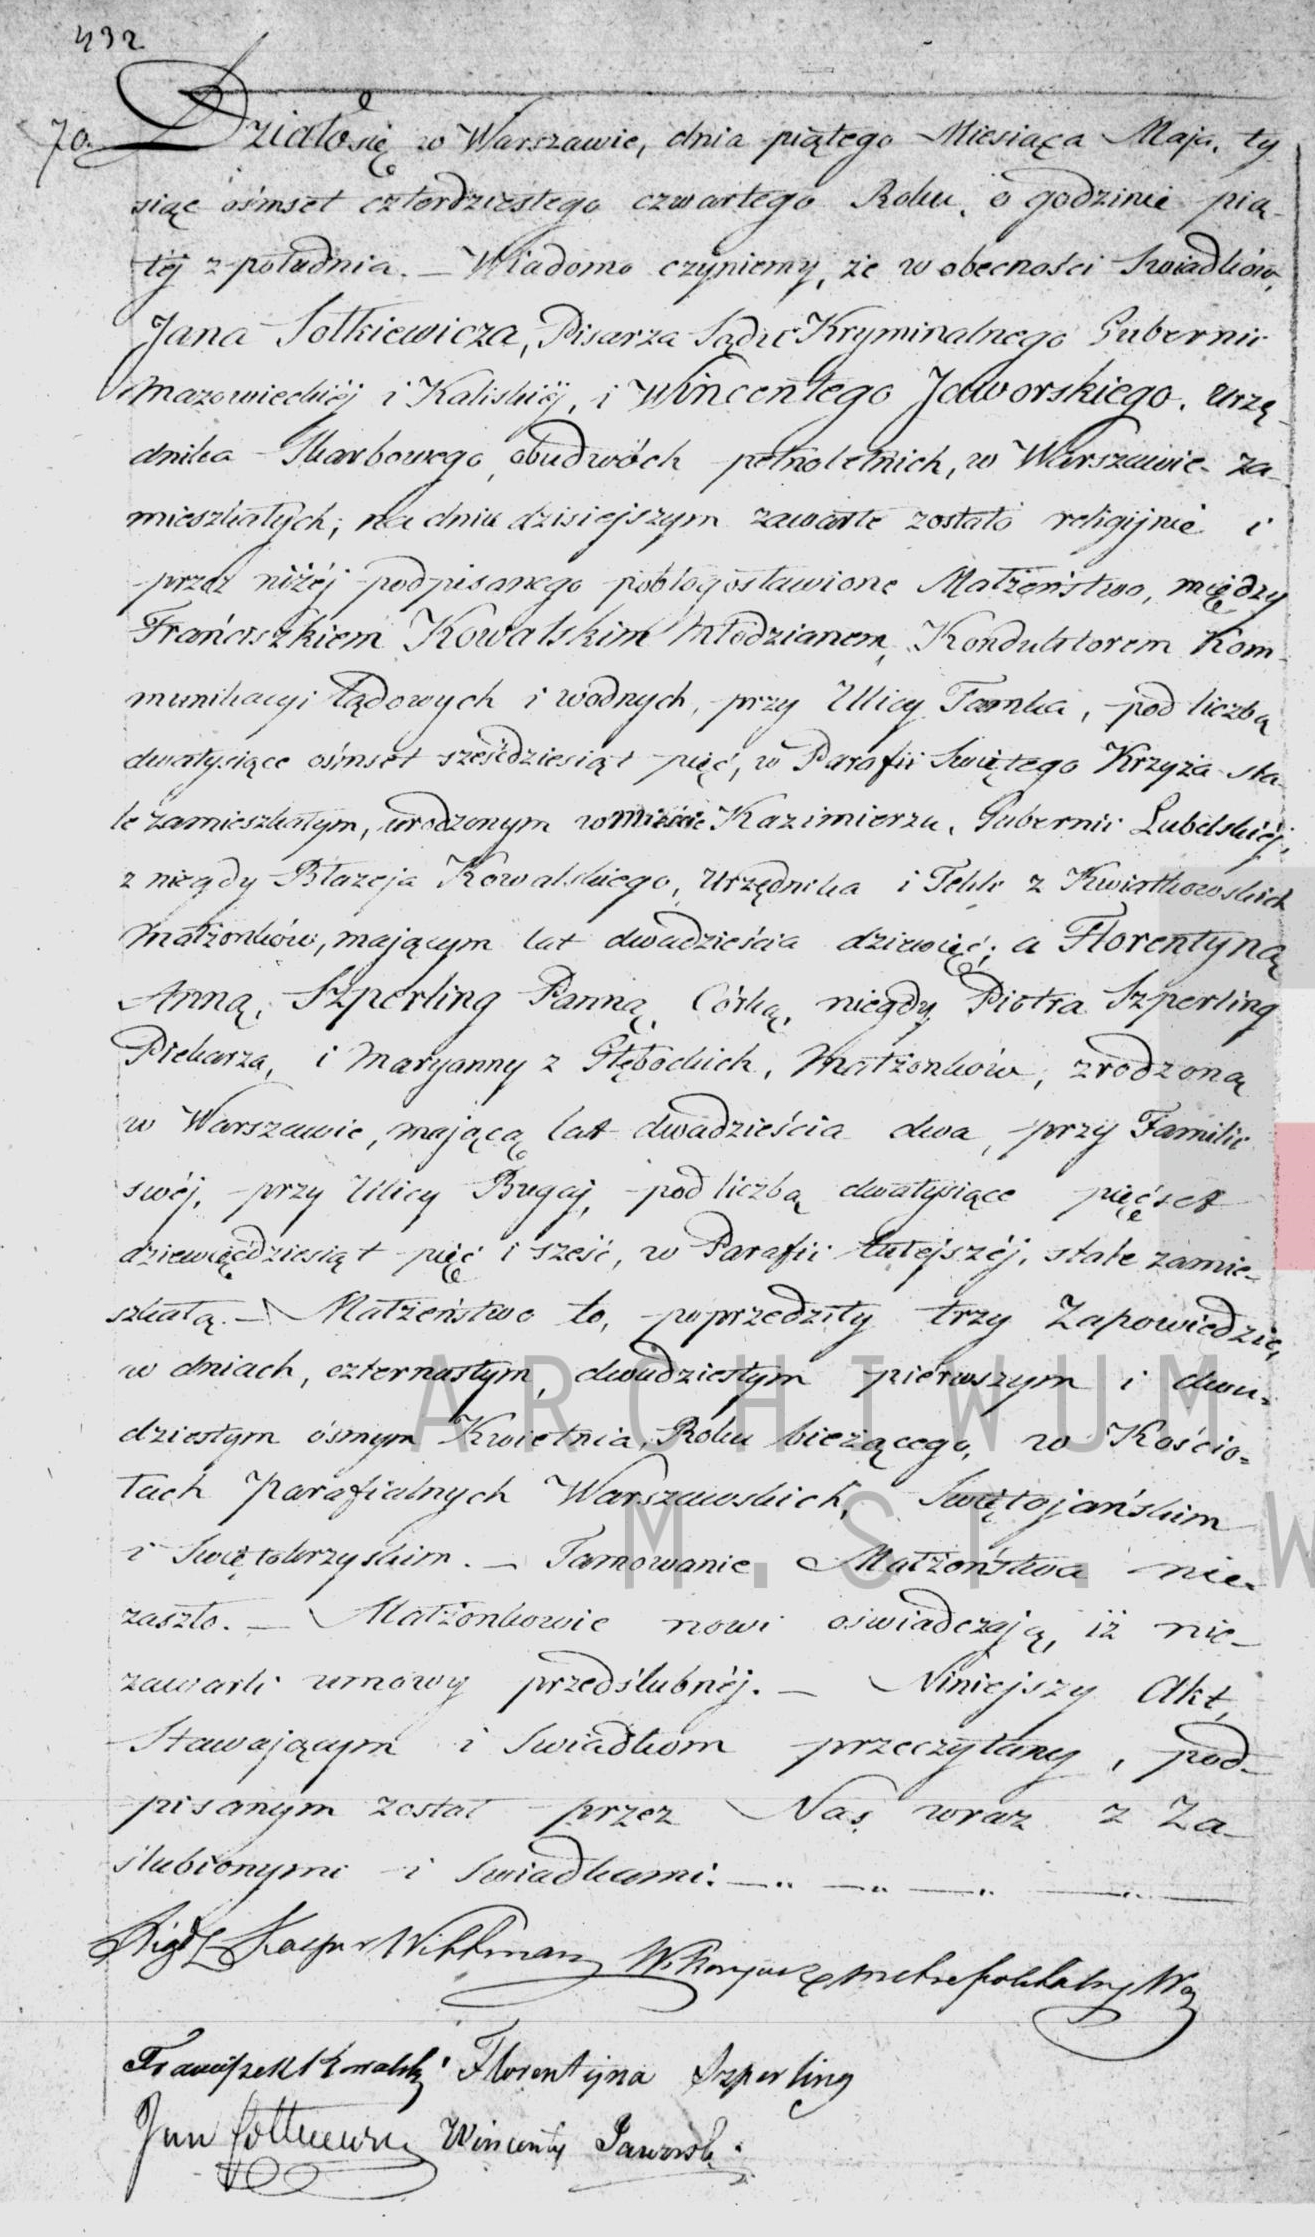 432
70. Działo się w Warszawie, dnia piątego Miesiąca Maja, ty-
siąc ośmset czterdziestego czwartego Roku, o godzinie pią-
téj z południa. — Wiadomo czyniemy, że w obecności Swiadków,
Jana Sołkiewicza, Pisarza Sądu Kryminalnego Gubernii
Mazowieckiéj i Kaliskiéj, i Wincentego Jaworskiego, Urzę-
dnika Skarbowego, obudwóch pełnoletnich, w Warszawie za-
mieszkałych; na dniu dzisiejszym zawarte zostało religijnie i
przez niżéj podpisanego pobłogosławione Małżeństwo, między
Franciszkiem Kowalskim Młodzianem, Konduktorem Kom-
munikacyi Lądowych i wodnych, przy Ulicy Tamka, pod liczbą
dwatysiące ośmset sześćdziesiąt pięć, w Parafii Swiętego Krzyża sta-
le zamieszkałym, urodzonym w mieście Kazimierzu, Gubernii Lubelskiéj,
z niegdy Błażeja Kowalskiego, Urzędnika i Tekli z Kwiatkowskich
Małżonków, mającym lat dwadzieścia dziewięć; a Florentyną
Anną, Szperling Panną, Córką, niegdy Piotra Szperling
Piekarza, i Maryanny z Głębockich, Małżonków, zrodzoną
w Warszawie, mającą lat dwadzieścia dwa, przy Familii
swéj, przy Ulicy Bugaj, pod liczbą dwatysiące pięćset
dziewięćdziesiąt pięć i sześć, w Parafii tutejszéj, stale zamie-
szkałą. — Małżeństwo to, poprzedziły trzy Zapowiedzie,
w dniach, czternastym, dwudziestym pierwszym i dwu-
dziestym ósmym Kwietnia, Roku bieżącego, w Kościo-
łach Parafialnych Warszawskich, Swiętojańskim
i Swiętokrzyskim. — Tamowanie Małżeństwa nie-
zaszło. — Małżonkowie nowi oświadczają, iż nie-
zawarli umowy przedślubnéj. — Niniejszy Akt,
Stawającym i Swiadkom przeczytany, pod-
pisanym został przez Nas wraz z Za-
ślubionymi i Swiadkami.
Xiądz Kacper Wikaryusz Metropolitalny
Franciszek Kowalski Florentyna Szperling
Jan Sołkiewicz Wincenty Jaworski
ARCHIWUM
M. ST. W